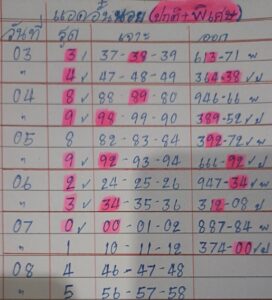 แอดอั้นหน่อย (ปกติ+พิเศษ)
วันที่ รูด เจาะ ออก
03 3✓ 37-38-39 613-71 พ
" 4✓ 47-48-49 364-38 ✓ป
04 8✓ 88-99-80 946-66 พ
" 9✓ 98-99-90 389-52 ✓ป
05 8 82-83-84 392-72 ✓พ
" 9✓ 92-93-94 666-92 ✓ป
06 2✓ 24-25-26 947-34 ✓พ
" 3✓ 34-35-36 312-08 ป
07 0✓ 00-01-02 887-84 พ
" 1 10-11-12 374-00 ✓ป
08 4 46-47-48
" 5 56-57-58